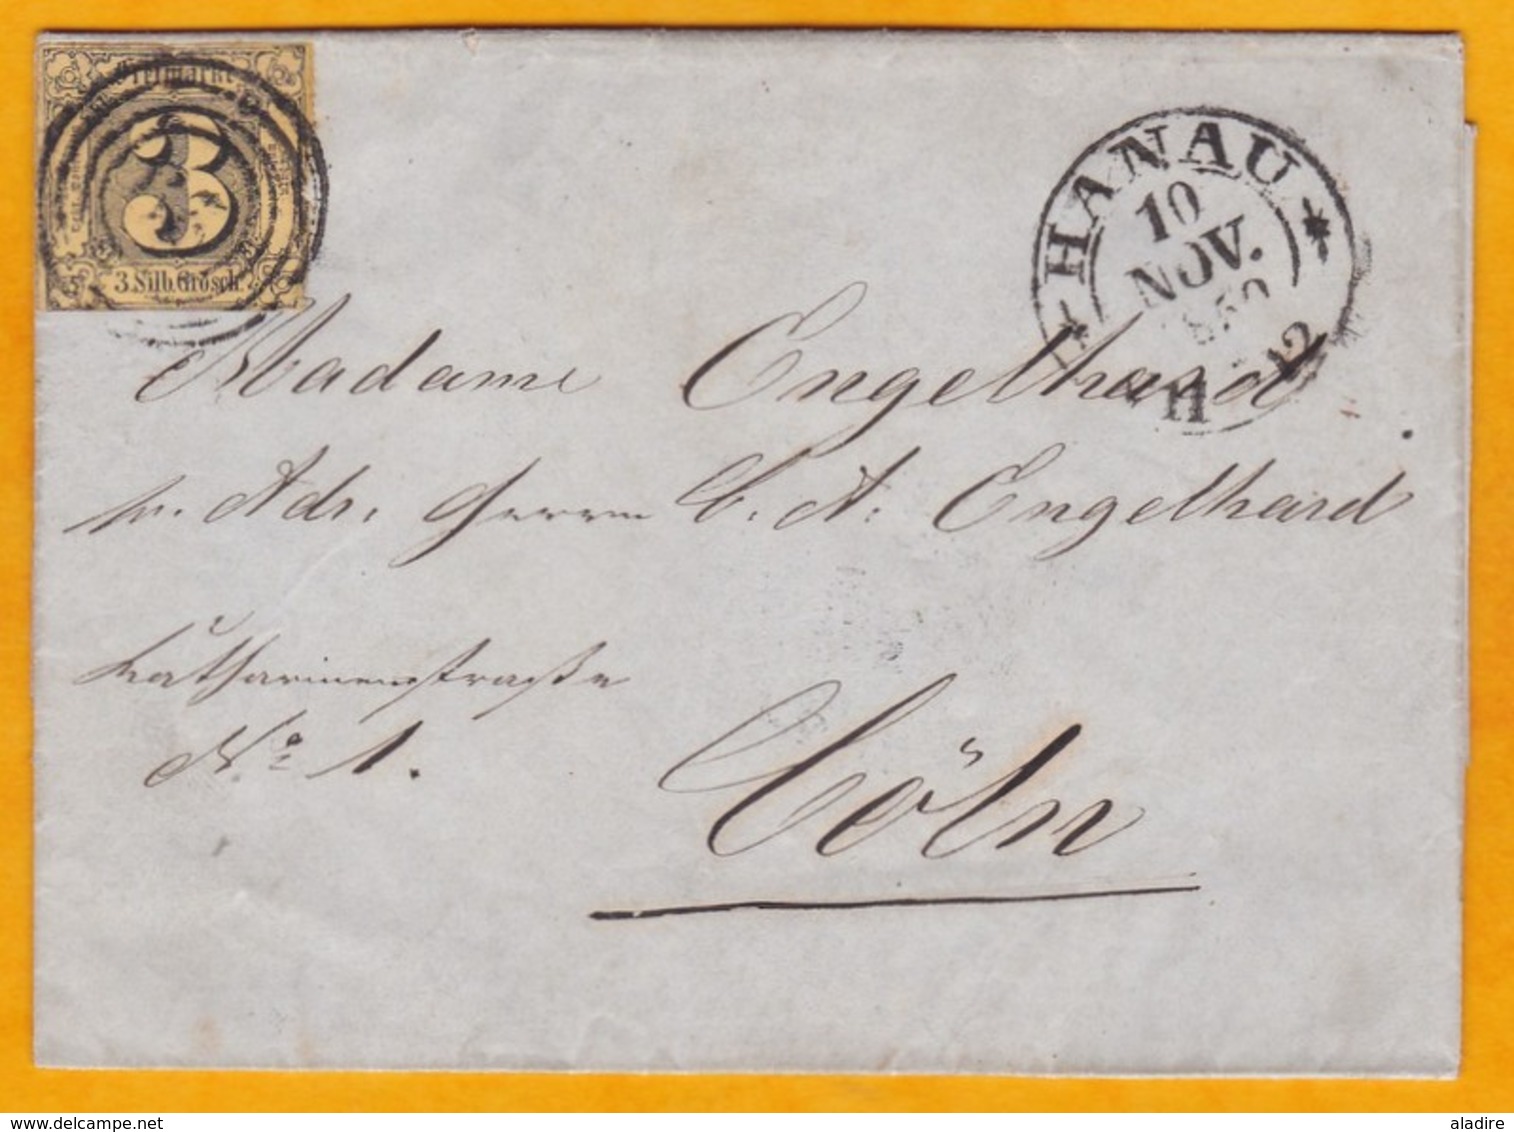 Freimarke
3
3. Silb. Grosch.
HANAU
10
NOV.
1850
11 - 12
Madame Engelhard
p. Adr. Herrn C. A. Engelhard
Katharinenstraße
No 1.
Cöln
delcampe.net
aladire